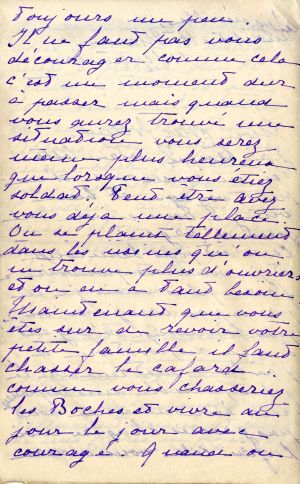 toujours un peu.
Il ne faut pas vous
décourager comme cela
c'est un moment dur
à passer mais quand
vous aurez trouvé une
situation vous serez
même plus heureux
que lorsque vous étiez
soldat. Peut être avez
vous déjà une place
On se plaint tellement
dans les usines qu'on
ne trouve plus d'ouvriers
et on en a tant besoin
Maintenant que vous
êtes sur de revoir votre
petite famille il faut
chasser le cafard
comme vous chasseriez
les Boches et vivre au
jour le jour avec
courage. Quand on